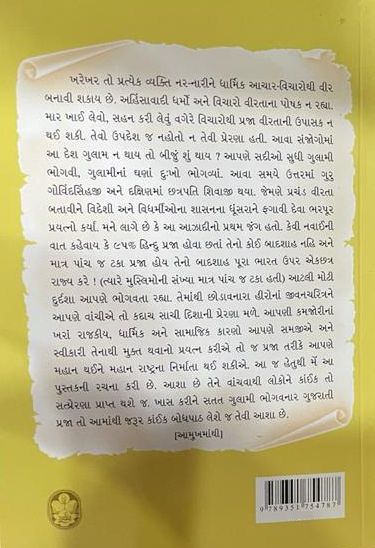 ખરેખર તો પ્રત્યેક વ્યક્તિ નર-નારીને ધાર્મિક આચાર-વિચારોથી વીર
બનાવી શકાય છે. અહિંસાવાદી ધર્મો અને વિચારો વીરતાના પોષક ન રહ્યા.
માર ખાઈ લેવો, સહન કરી લેવું વગેરે વિચારોથી પ્રજા વીરતાની ઉપાસક ન
થઈ શકી. તેવો ઉપદેશ જ નહોતો ન તેવી પ્રેરણા હતી. આવા સંજોગોમાં
આ દેશ ગુલામ ન થાય તો બીજું શું થાય ? આપણે સદીઓ સુધી ગુલામી
ભોગવી, ગુલામીનાં ઘણાં દુઃખો ભોગવ્યાં. આવા સમયે ઉત્તરમાં ગુરુ
ગોવિંદસિંહજી અને દક્ષિણમાં છત્રપતિ શિવાજી થયા. જેમણે પ્રચંડ વીરતા
બતાવીને વિદેશી અને વિધર્મીઓના શાસનના ધૂંસરાને ફગાવી દેવા ભરપૂર
પ્રયત્નો કર્યા. મને લાગે છે કે આ આઝાદીનો પ્રથમ જંગ હતો. કેવી નવાઈની
વાત કહેવાય કે ૯૫% હિન્દુ પ્રજા હોવા છતાં તેનો કોઈ બાદશાહ નહિ અને
માત્ર પાંચ જ ટકા પ્રજા હોય તેનો બાદશાહ પૂરા ભારત ઉપર એકછત્ર
રાજ્ય કરે ! (ત્યારે મુસ્લિમોની સંખ્યા માત્ર પાંચ જ ટકા હતી) આટલી મોટી
દુર્દશા આપણે ભોગવતા રહ્યા. તેમાંથી છોડાવનારા હીરોનાં જીવનચરિત્રને
આપણે વાંચીએ તો કદાચ સાચી દિશાની પ્રેરણા મળે. આપણી કમજોરીનાં
ખરાં રાજકીય, ધાર્મિક અને સામાજિક કારણો આપણે સમજીએ અને
સ્વીકારી તેનાથી મુક્ત થવાનો પ્રયત્ન કરીએ તો જ પ્રજા તરીકે આપણે
મહાન થઈને મહાન રાષ્ટ્રના નિર્માતા થઈ શકીએ. આ જ હેતુથી મેં આ
પુસ્તકની રચના કરી છે. આશા છે તેને વાંચવાથી લોકોને કાંઈક તો
સત્પ્રેરણા પ્રાપ્ત થશે જ. ખાસ કરીને સતત ગુલામી ભોગવનાર ગુજરાતી
પ્રજા તો આમાંથી જરૂર કાંઈક બોધપાઠ લેશે જ તેવી આશા છે.
[આમુખમાંથી]
9 789351 754787